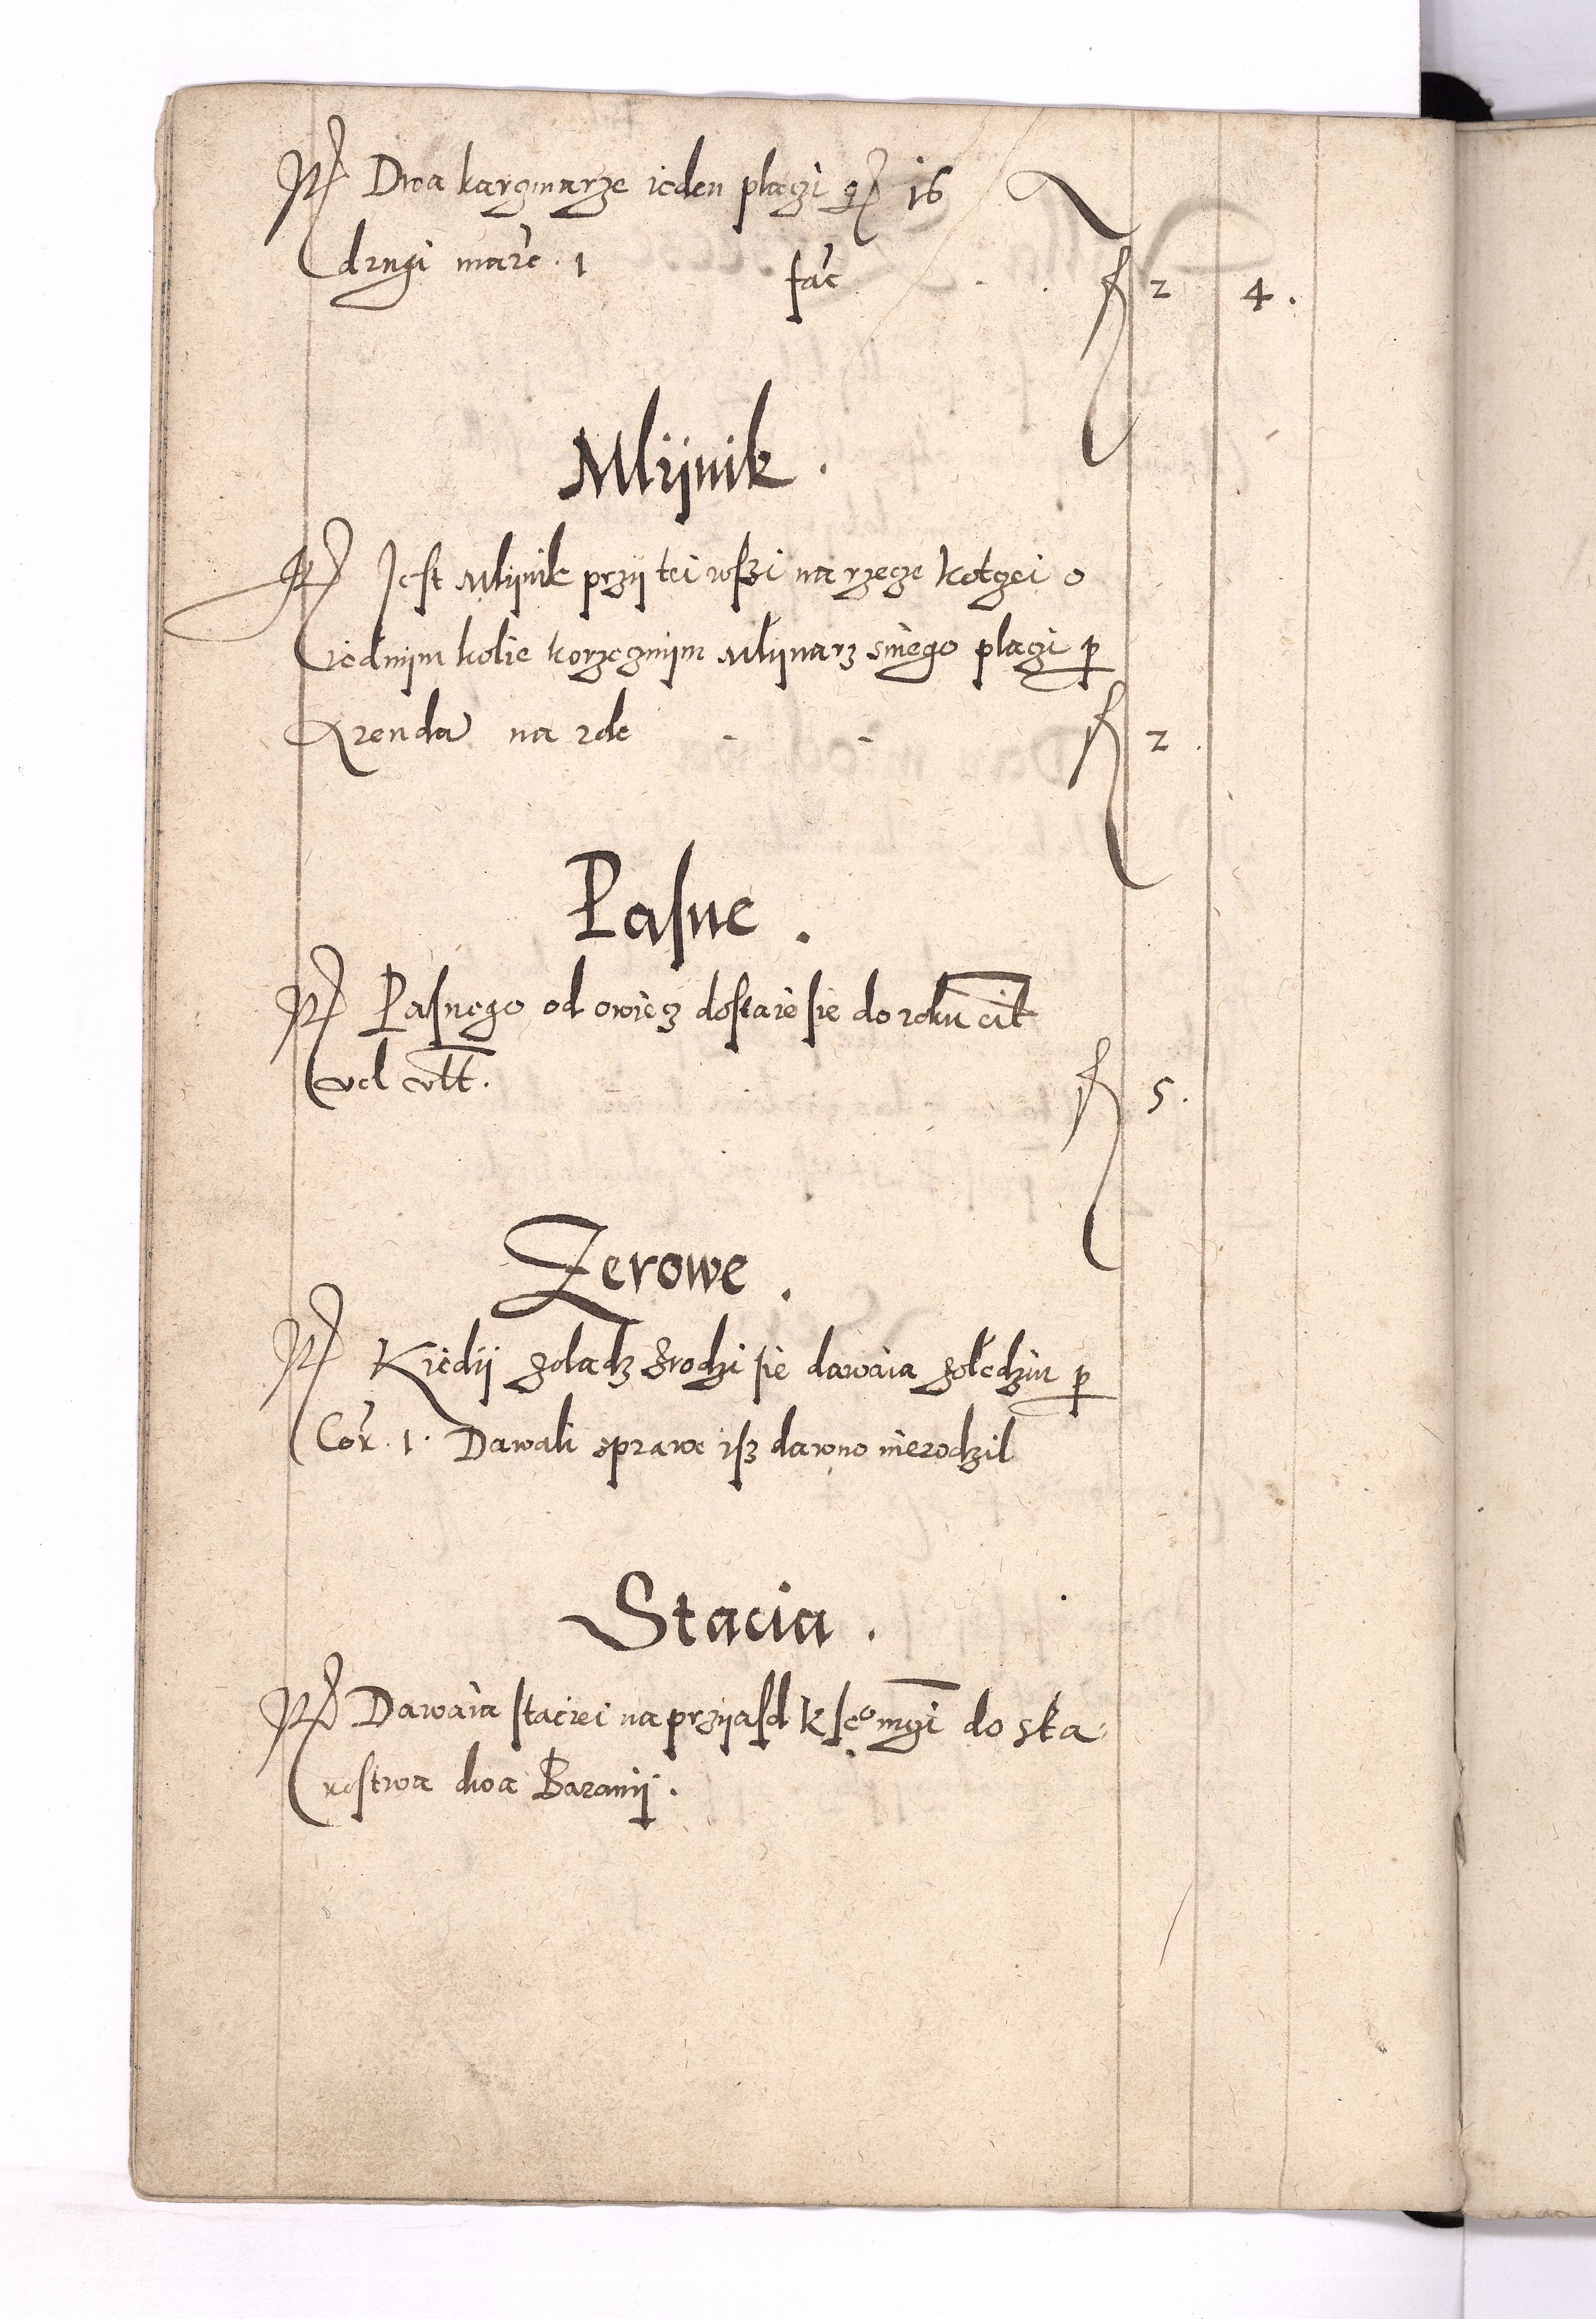 It Dwa karczmarze ieden placzi gr 16
drugi marc. 1 fac fl 2 4.
Mlijnik.
It Jest Mlijnik przij tei wsszi na rzecze kotczei o
iednijm kolie korzecznijm Mlijnarz sniego placzi p
Arenda na rok fl 2.
Pasne.
It Pasnego od owiecz dostaie sie do roku cit
vel vltt. fl 5.
Zerowe.
It Kiedij zoladz zrodzi sie dawaia zoledziu p
Cor. 1. Dawali sprawe isz dawno nierodzil
Stacia.
It Dawaia staciei na przijasd k je° mczi do sta
rostwa dwa Baranij.